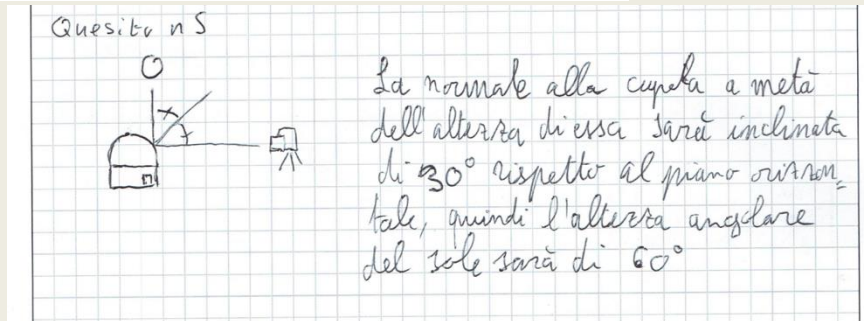 Quesito n 5
La normale alla cupola a metà
dell'altezza di essa sarà inclinata
di 30° rispetto al piano orizzon=
tale, quindi l'altezza angolare
del sole sarà di 60°